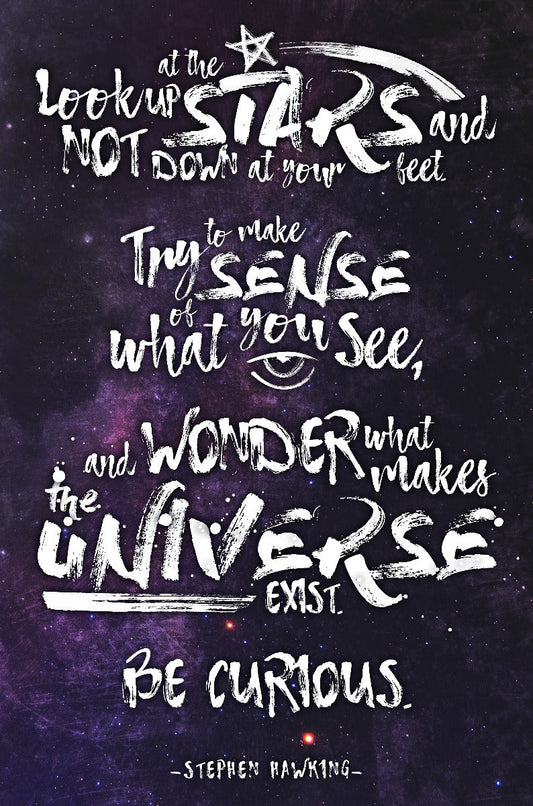 Look up at the STARS and
NOT DOWN at your feet.
Try to make SENSE
of what you See,
and WONDER what makes
the UNIVERSE
EXIST.
BE CURIOUS.
-STEPHEN HAWKING-